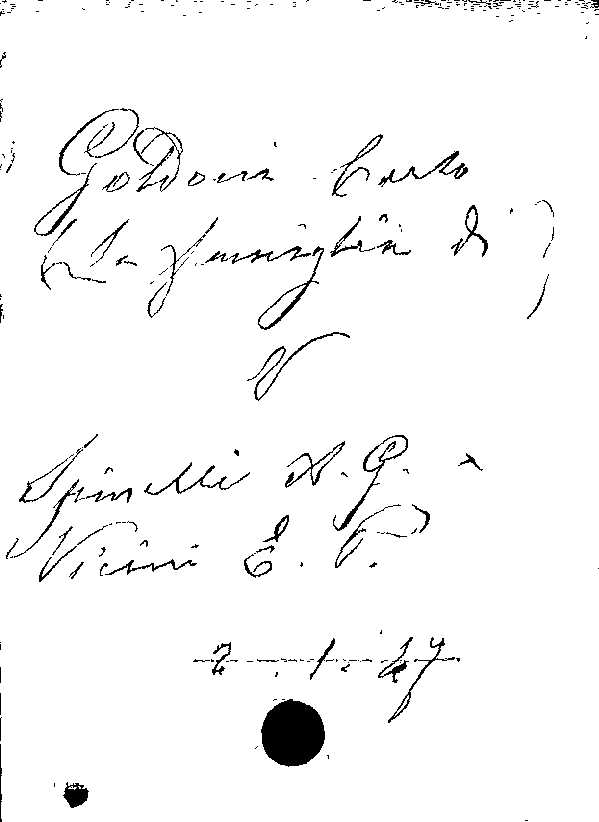 Goldoni Carlo
(La famiglia di)
V
Spinelli A. G. e
Vicini E. P.
2 . 1. 47